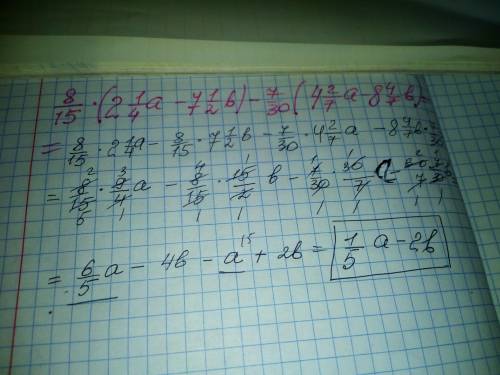 8/15 · (2 1/4 a − 7 1/2 b) − 7/30 (4 2/7 a − 8 4/7 b)
= 8/15 · 2 1/4 a − 8/15 · 7 1/2 b − 7/30 · 4 2/7 a − 8 4/7 b · 7/30
= 8/15 · 9/4 a − 8/15 · 15/2 b − 7/30 · 30/7 a
= 6/5 a − 4b − a + 2b = 1/5 a − 2b